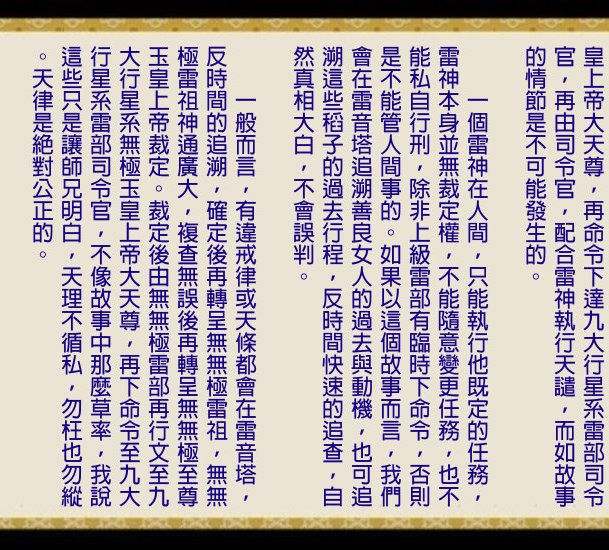 皇上帝大天尊，再命令下達九大行星系雷部司令
官，再由司令官，配合雷神執行天譴，而如故事
的情節是不可能發生的。
一個雷神在人間，只能執行他既定的任務，
雷神本身並無裁定權，不能隨意變更任務，也不
能私自行刑，除非上級雷部有臨時下命令，否則
是不能管人間事的。如果以這個故事而言，我們
會在雷音塔追溯善良女人的過去與動機，也可追
溯這些稻子的過去行程，反時間快速的追查，自
然真相大白，不會誤判。
一般而言，有違戒律或天條都會在雷音塔，
反時間的追溯，確定後再轉呈無無極雷祖，無無
極雷祖神通廣大，複查無誤後再轉呈無無極至尊
玉皇上帝裁定。裁定後由無無極雷部再行文至九
大行星系無極玉皇上帝大天尊，再下命令至九大
行星系雷部司令官，不像故事中那麼草率，我說
這些只是讓師兄明白，天理不循私，勿枉也勿縱
。天律是絕對公正的。